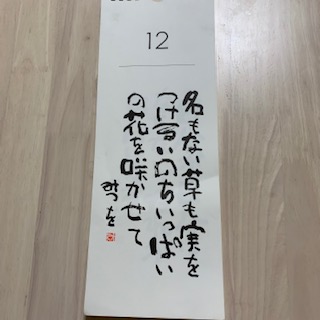 12
名もない草も実を
つけるいのちいっぱい
の花を咲かせて
みつを